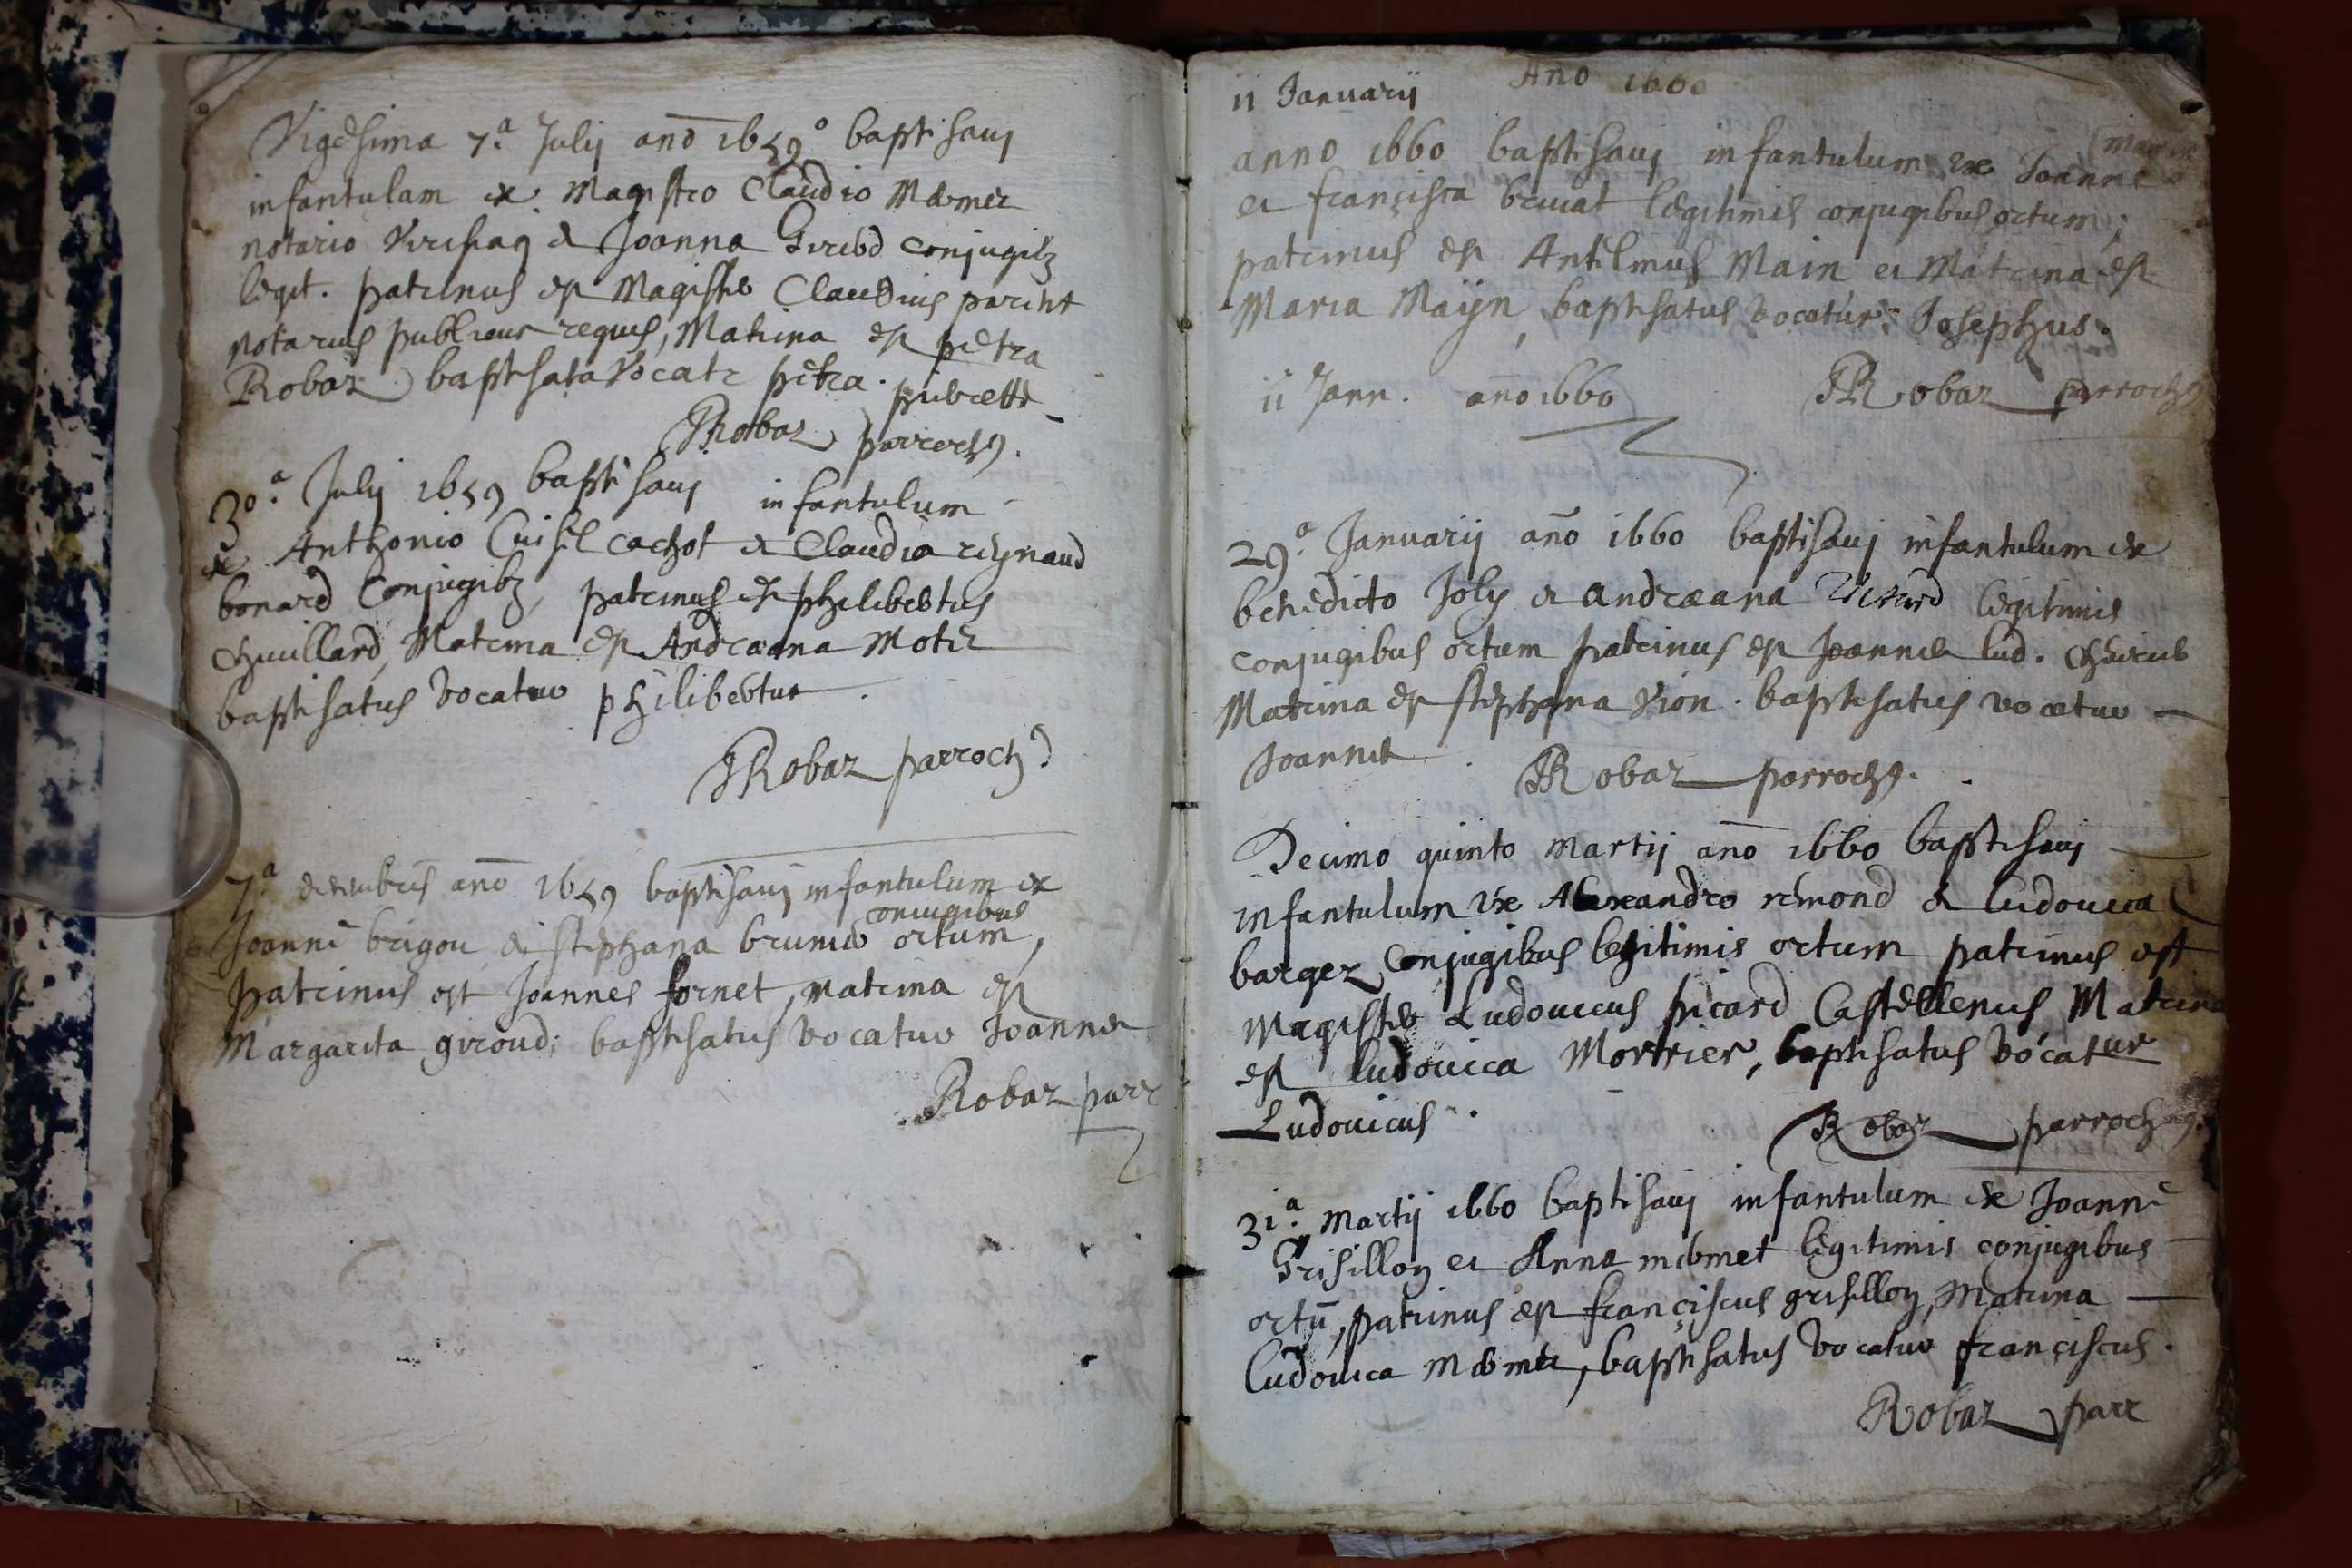 Vigesima 7.a Julij ano 1659o baptisavi
infantulam ex Magistro Claudio Mermet
notario & Joanna conjugib;
legit. patrinus est Magister Claudius parent
notarius publicus regius, Matrina est petra
Robaz baptisata vocatr petra.
JRobaz parroch9.
30.a Julij 1659 baptisavi infantulum
ex Anthonio Cuisel cachot & Claudia reynaud
bonard Conjugib; patrinus est philibertus
chuillard, Matrina est Andraeana Motet
baptisatus vocatur philibertus.
JRobaz parroch9
7.a ano 1659 baptisavi infantulum ex
conjugibus
Joanne brigou & stephana brunet ortum,
patrinus est Joannes fornet, matrina est
Margarita giroud; baptisatus vocatur Joannes
Robaz parr
Ano 1660
11 Januarij
anno 1660 baptisavi infantulum ex Joanne
et francisca bruiat legitimis conjugibus ortum;
patrinus est Antelmus Main et Matrina est
Maria Maijn, baptisatus vocatur; Josephus.
11 Jann. ano 1660 JRobaz parroch9
29.a Januarij ano 1660 baptisavi infantulum ex
benedicto Joly & andraeana legitimis
conjugibus ortum patrinus est Joannes lud.
Matrina est stephana Vion. baptisatus vocatur
Joannes. JRobaz parroch9.
Decimo quinto Martij ano 1660 baptisavi
infantulum ex Alexandro remond & ludovica
bargez conjugibus legitimis ortum patrinus est
Magister Ludovicus picard Castellenus Matrina
est ludovica Mortrier, baptisatus vocatur
Ludovicus. Robaz parroch9.
31.a Martij 1660 baptisavi infantulum ex Joanne
Grisillon et Anna mermet legitimis conjugibus
ortu, patrinus est franciscus grisillon, Matrina
ludovica Mermet, baptisatus vocatur franciscus.
Robaz parr